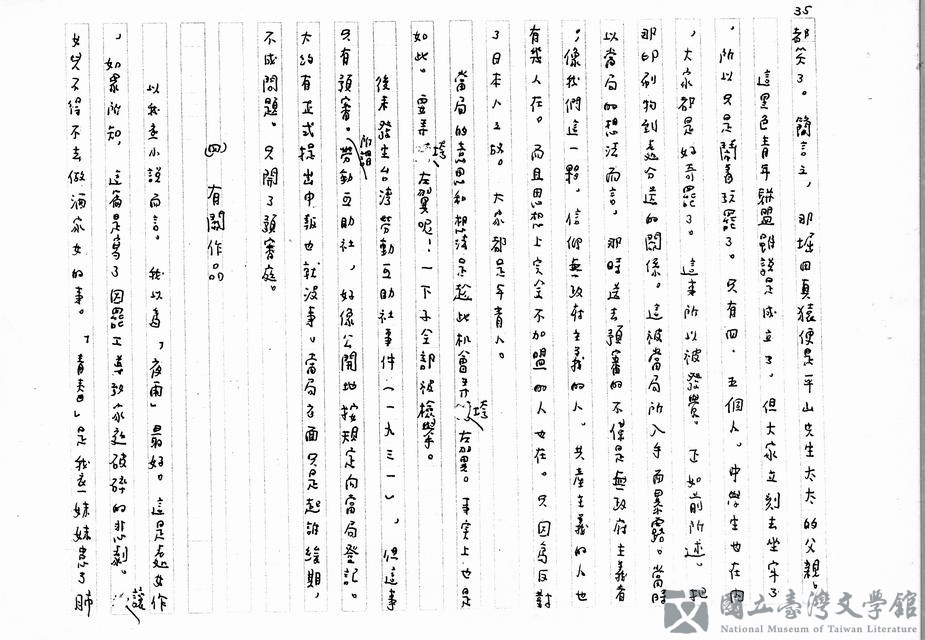 35
都笑了。簡言之，那堀田真猿便是平山先生太太的父親。
這黑色青年聯盟雖說是成立了，但大家立刻去坐牢了
，所以只是鬧着玩罷了。只有四、五個人，中學生也在內
，大家都是好奇罷了。這事所以被發覺。正如前所述，把
那印刷物到處分送的關係。這被當局所入手而暴露。當時
以當局的想法而言，那時送去預審的不僅是無政府主義者
，像我們這一夥，信仰無政府主義的人，共產主義的人也
有幾人在。而且思想上完全不加盟的人也在。只因為反對
了日本人之故。大家都是年青人。
當局的意思和想法是趁此机會弄垮左翼。事实上也是
如此。要弄垮左翼呢！一下子全部被檢舉。
後來發生台灣勞動互助社事件（一九三一），但這事
只有預審。所謂勞動互助社，好像公開地按規定向當局登記。
大約有正式提出申報也就沒事。當局方面只是起訴緩期，
不成問題。只開了預審庭。
㈣ 有關作品
以我查小說而言。我以為「夜雨」最好。這是處女作
，如眾所知，這篇是寫了因罷工導致家庭破碎的悲劇。讓
女兒不得不去做酒家女的事。「青春」是我表妹妹患了肺
國立臺灣文學館
National Museum of Taiwan Literature